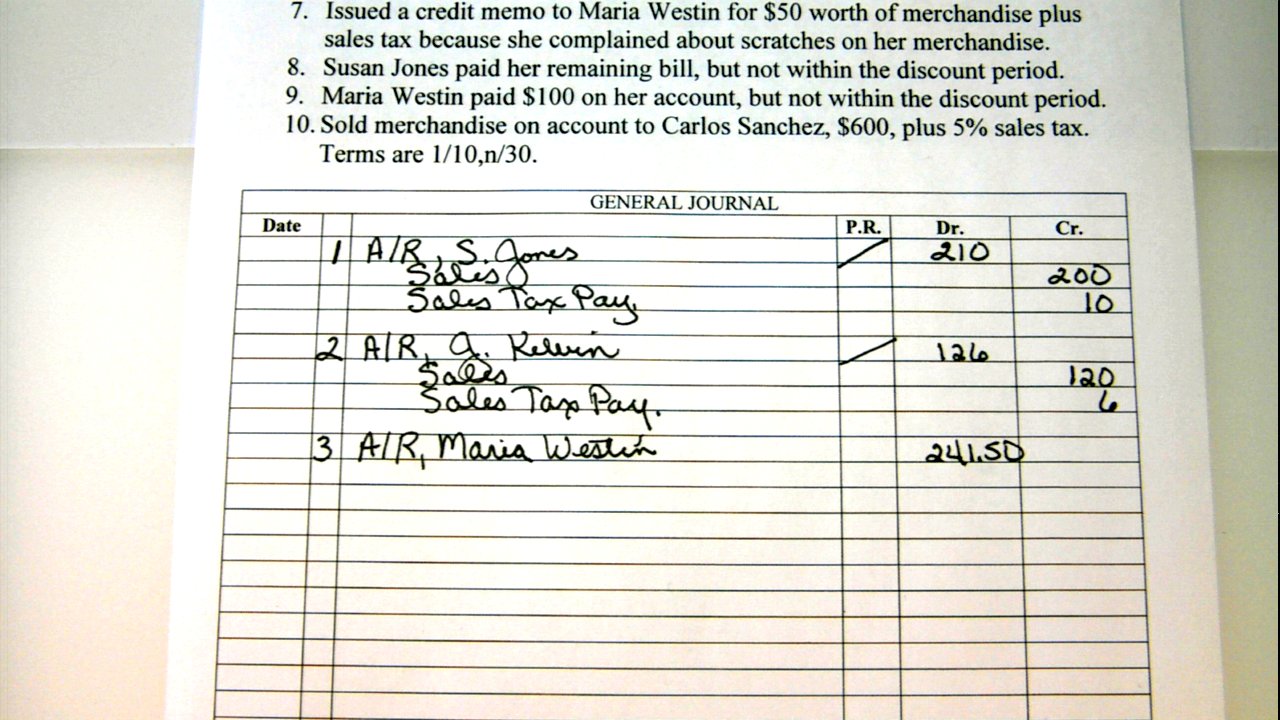 7. Issued a credit memo to Maria Westin for $50 worth of merchandise plus
sales tax because she complained about scratches on her merchandise.
8. Susan Jones paid her remaining bill, but not within the discount period.
9. Maria Westin paid $100 on her account, but not within the discount period.
10. Sold merchandise on account to Carlos Sanchez, $600, plus 5% sales tax.
Terms are 1/10,n/30.
GENERAL JOURNAL
Date P.R. Dr. Cr.
1 A/R, S. Jones 210
Sales 200
Sales Tax Pay. 10
2 A/R, J. Kelvin 126
Sales 120
Sales Tax Pay. 6
3 A/R, Maria Westin 241.50